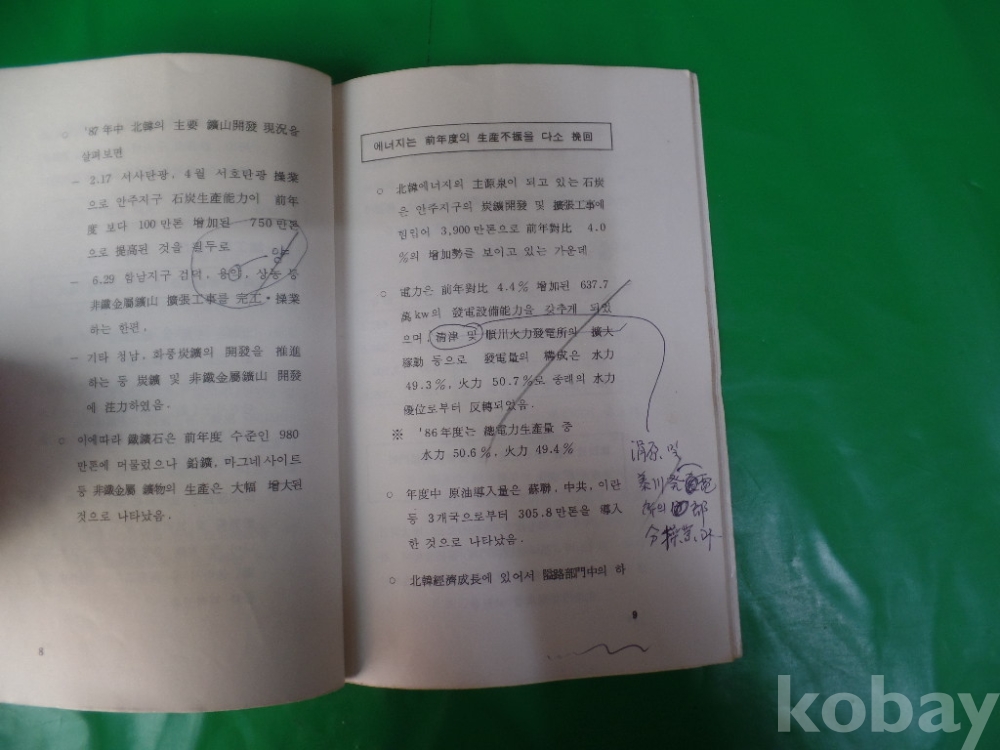 ○ '87年中 北韓의 主要 鑛山開發 現況을
살펴보면
- 2.17 서사탄광, 4월 서호탄광 操業
으로 안주지구 石炭生產能力이 前年
度 보다 100만톤 增加된 750만톤
으로 提高된 것을 필두로
- 6.29 함남지구 검덕, 용양, 상농 등
非鐵金屬鑛山 擴張工事를 完工·操業
하는 한편,
- 기타 청남, 화풍炭鑛의 開發을 推進
하는 등 炭鑛 및 非鐵金屬鑛山 開發
에 注力하였음.
○ 이에따라 鐵鑛石은 前年度 수준인 980
만톤에 머물렀으나 鉛鑛, 마그네사이트
등 非鐵金屬 鑛物의 生產은 大幅 增大된
것으로 나타났음.
8
에너지는 前年度의 生產不振을 다소 挽回
○ 北韓에너지의 主源泉이 되고 있는 石炭
은 안주지구의 炭鑛開發 및 擴張工事에
힘입어 3,900만톤으로 前年對比 4.0
%의 增加勢를 보이고 있는 가운데
○ 電力은 前年對比 4.4% 增加된 637.7
萬kw의 發電設備能力을 갖추게 되었
으며, 清津 및 順川火力發電所의 擴大
稼動 등으로 發電量의 構成은 水力
49.3%, 火力 50.7%로 종래의 水力
優位로부터 反轉되었음.
※ '86年度는 總電力生產量 중
水力 50.6%, 火力 49.4%
○ 年度中 原油導入量은 蘇聯, 中共, 이란
등 3개국으로부터 305.8만톤을 導入
한 것으로 나타났음.
○ 北韓經濟成長에 있어서 隘路部門中의 하
9
및
所의 部
kobay